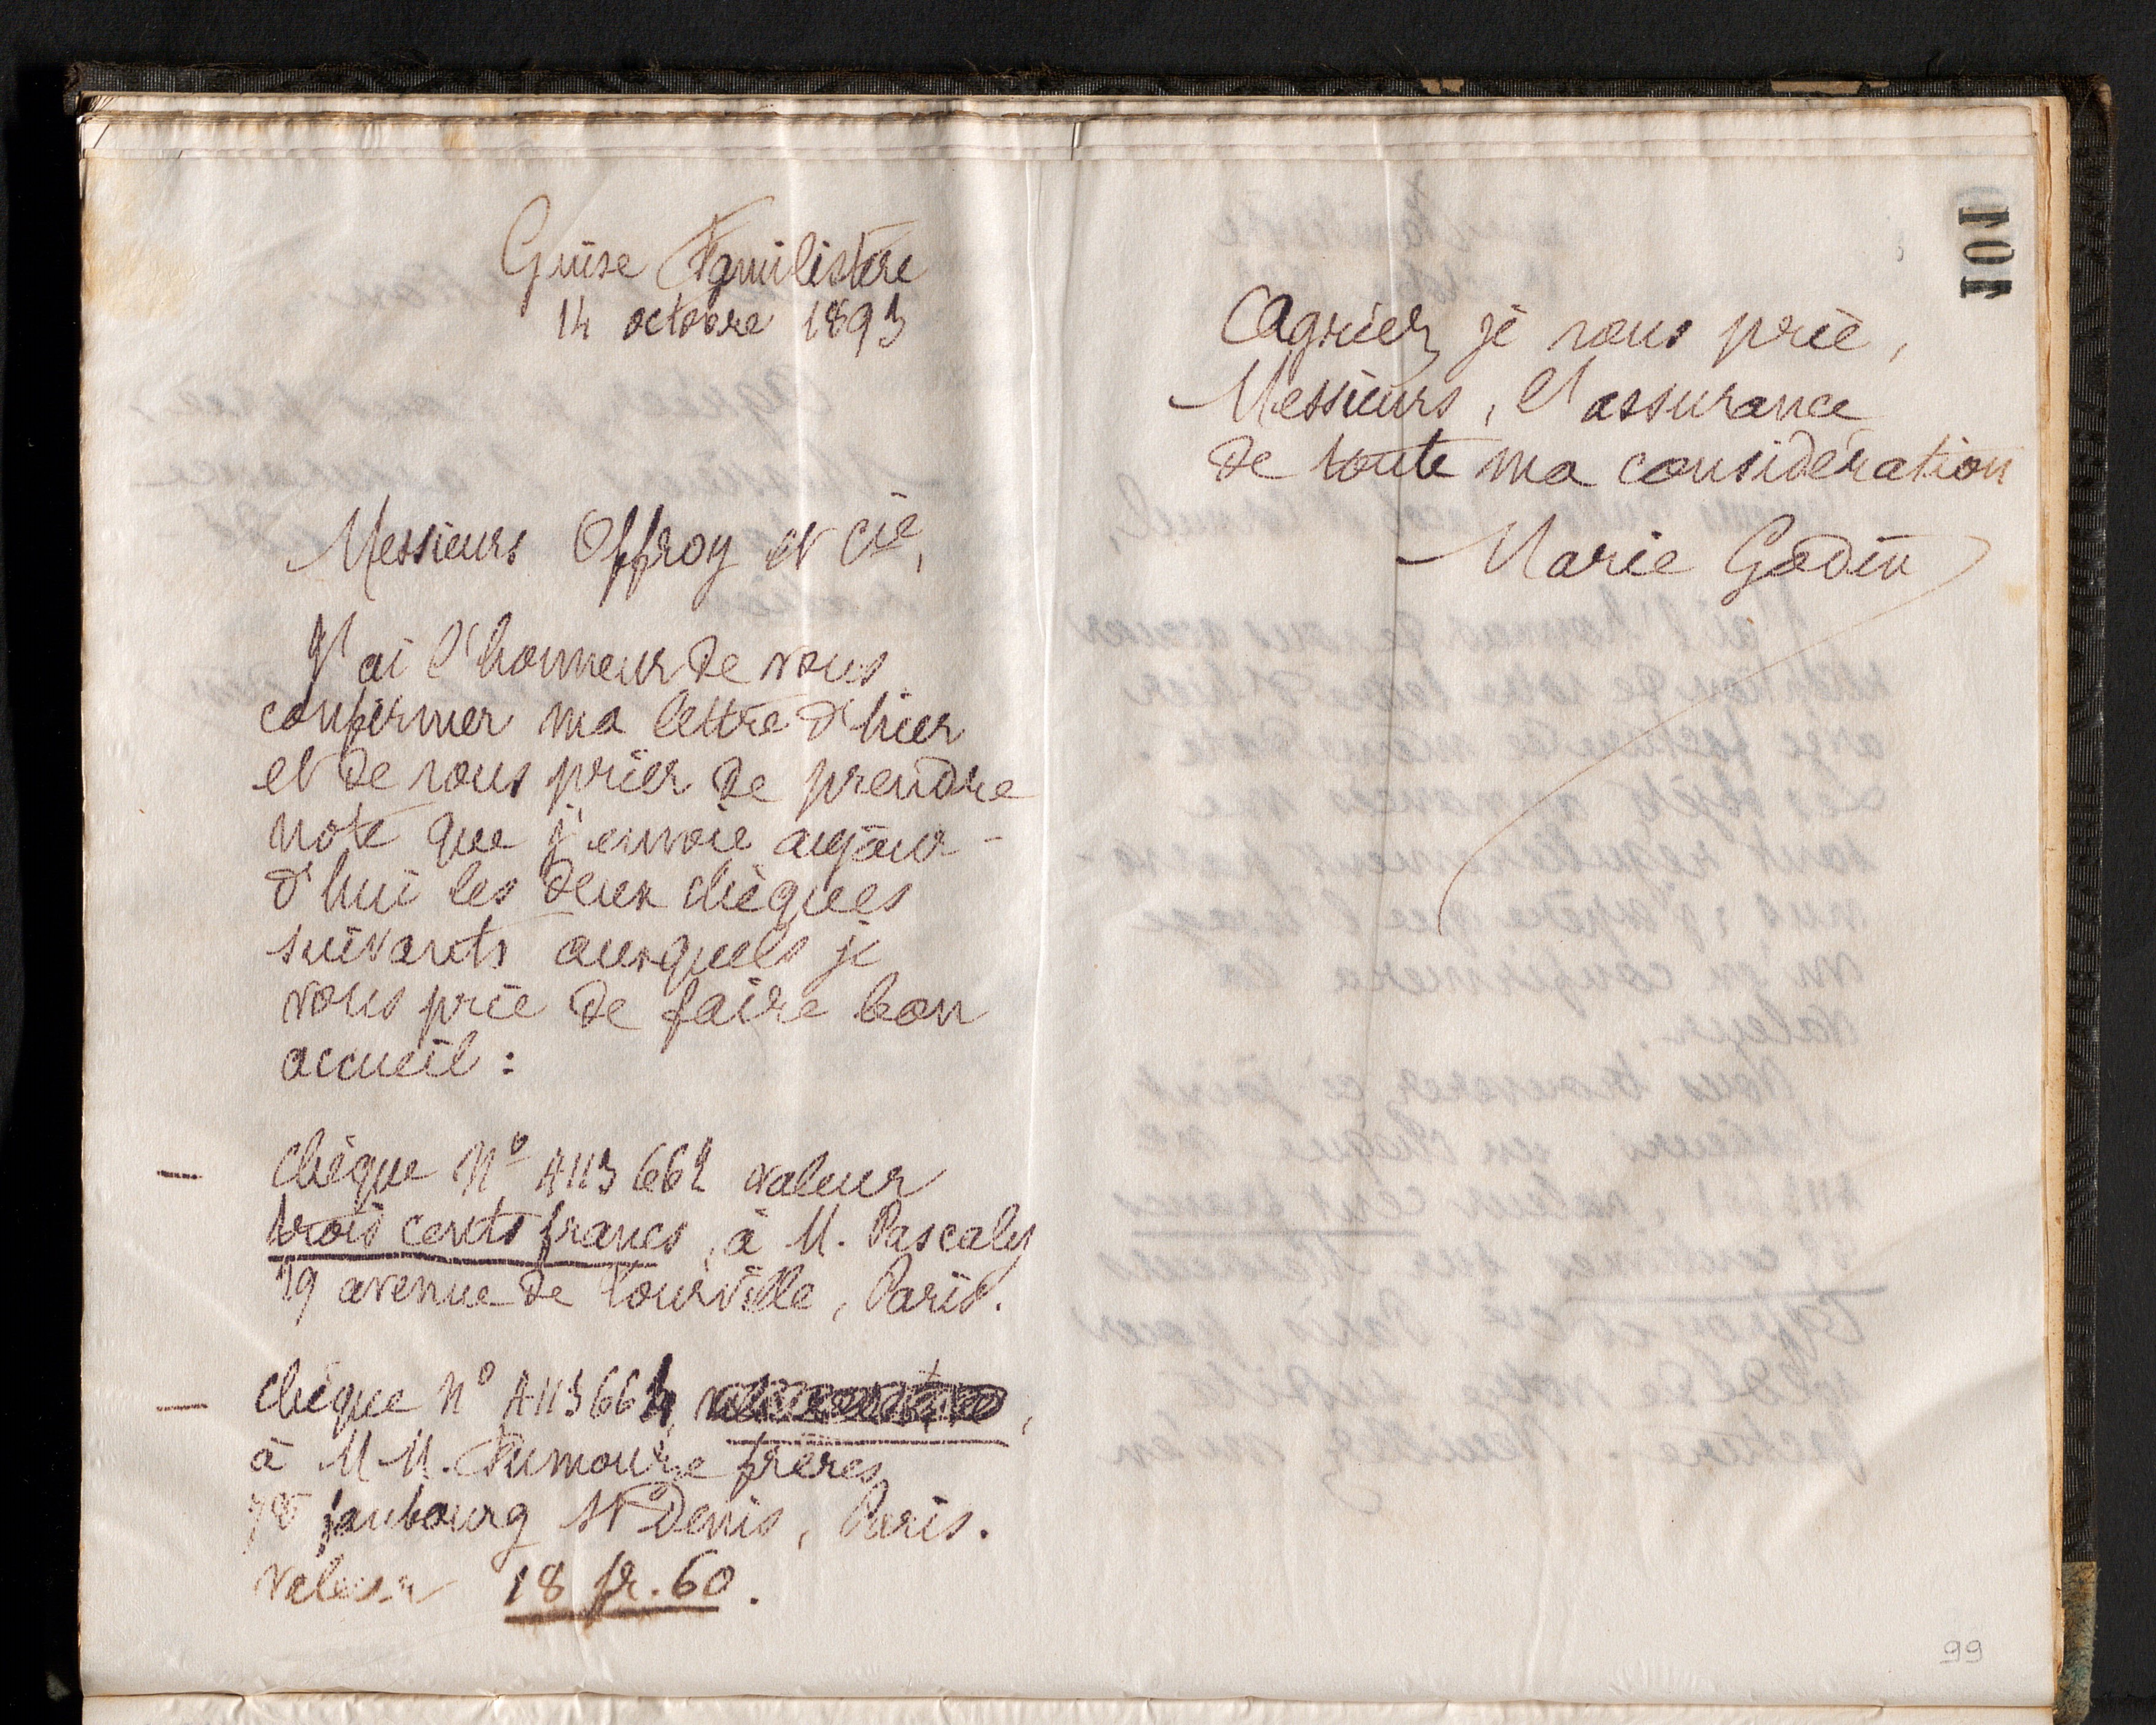 Guise Familistère
14 octobre 1893
Messieurs Offroy et Cie,
J'ai l'honneur de vous
confirmer ma lettre d'hier
et de vous prier de prendre
note que j'envoie aujour-
d'hui les deux chèques
suivants auxquels je
vous prie de faire bon
accueil :
— Chèque No A113662 valeur
trois cents francs, à M. Pascaly
19 avenue de Tourville, Paris.
— Chèque No A113664,
à MM. frères
78 faubourg St Denis, Paris.
Valeur 18 fr. 60.
101
Agréez, je vous prie,
Messieurs, l'assurance
de toute ma considération
Marie Godin
99